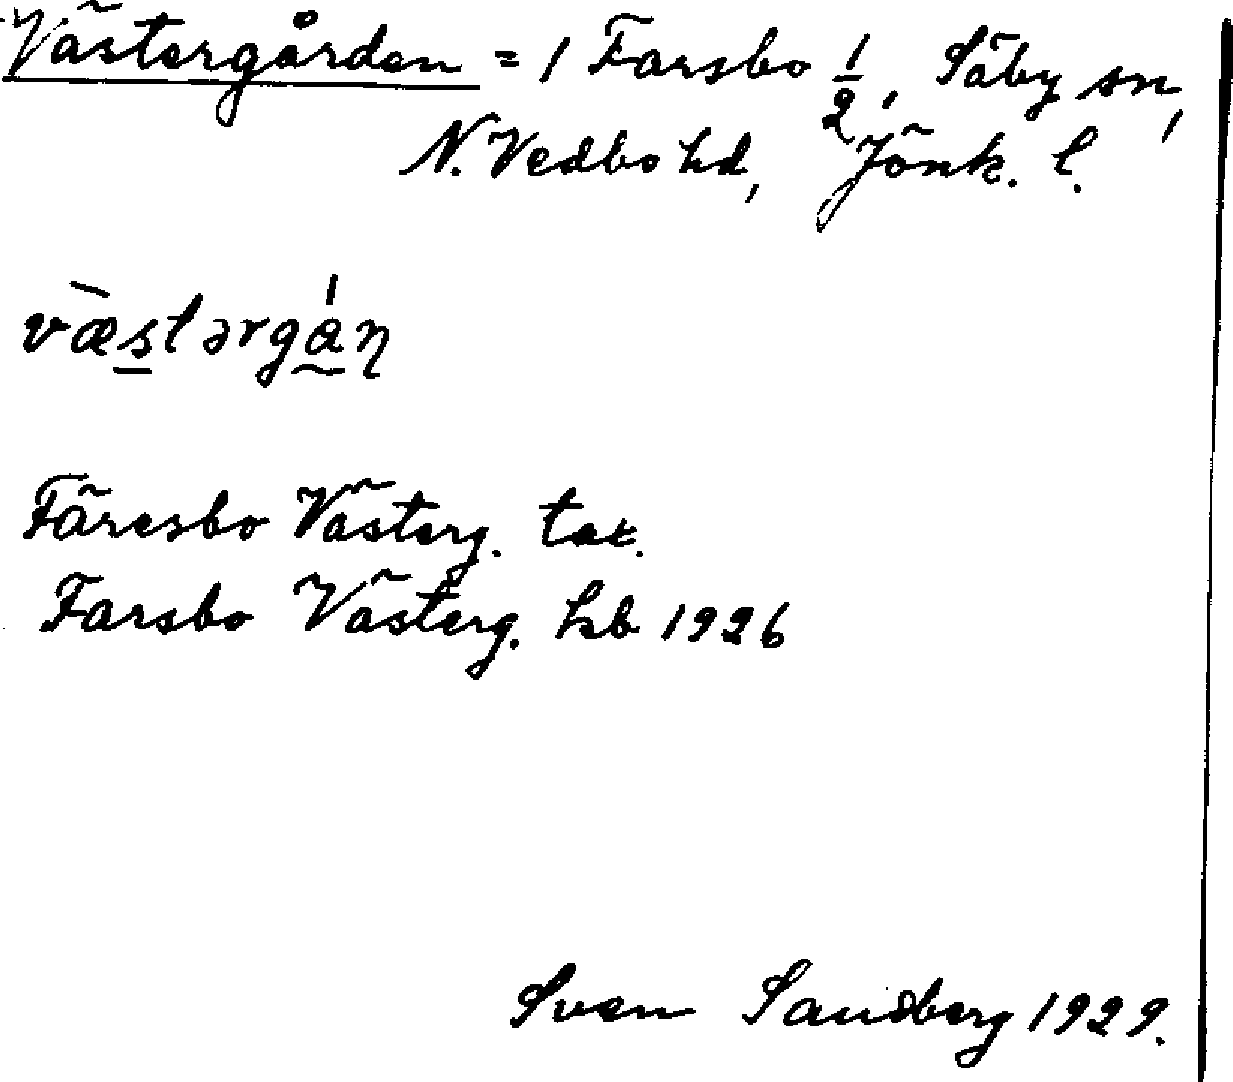 Västergården = 1 Farsbo 1/2, Säby sn,
N. Vedbo hd, Jönk. l.
væ̀stərgá̰ɳ
Färesbo Västerg. tax.
Farsbo Västerg. hb 1926
Sven Sandberg 1929.